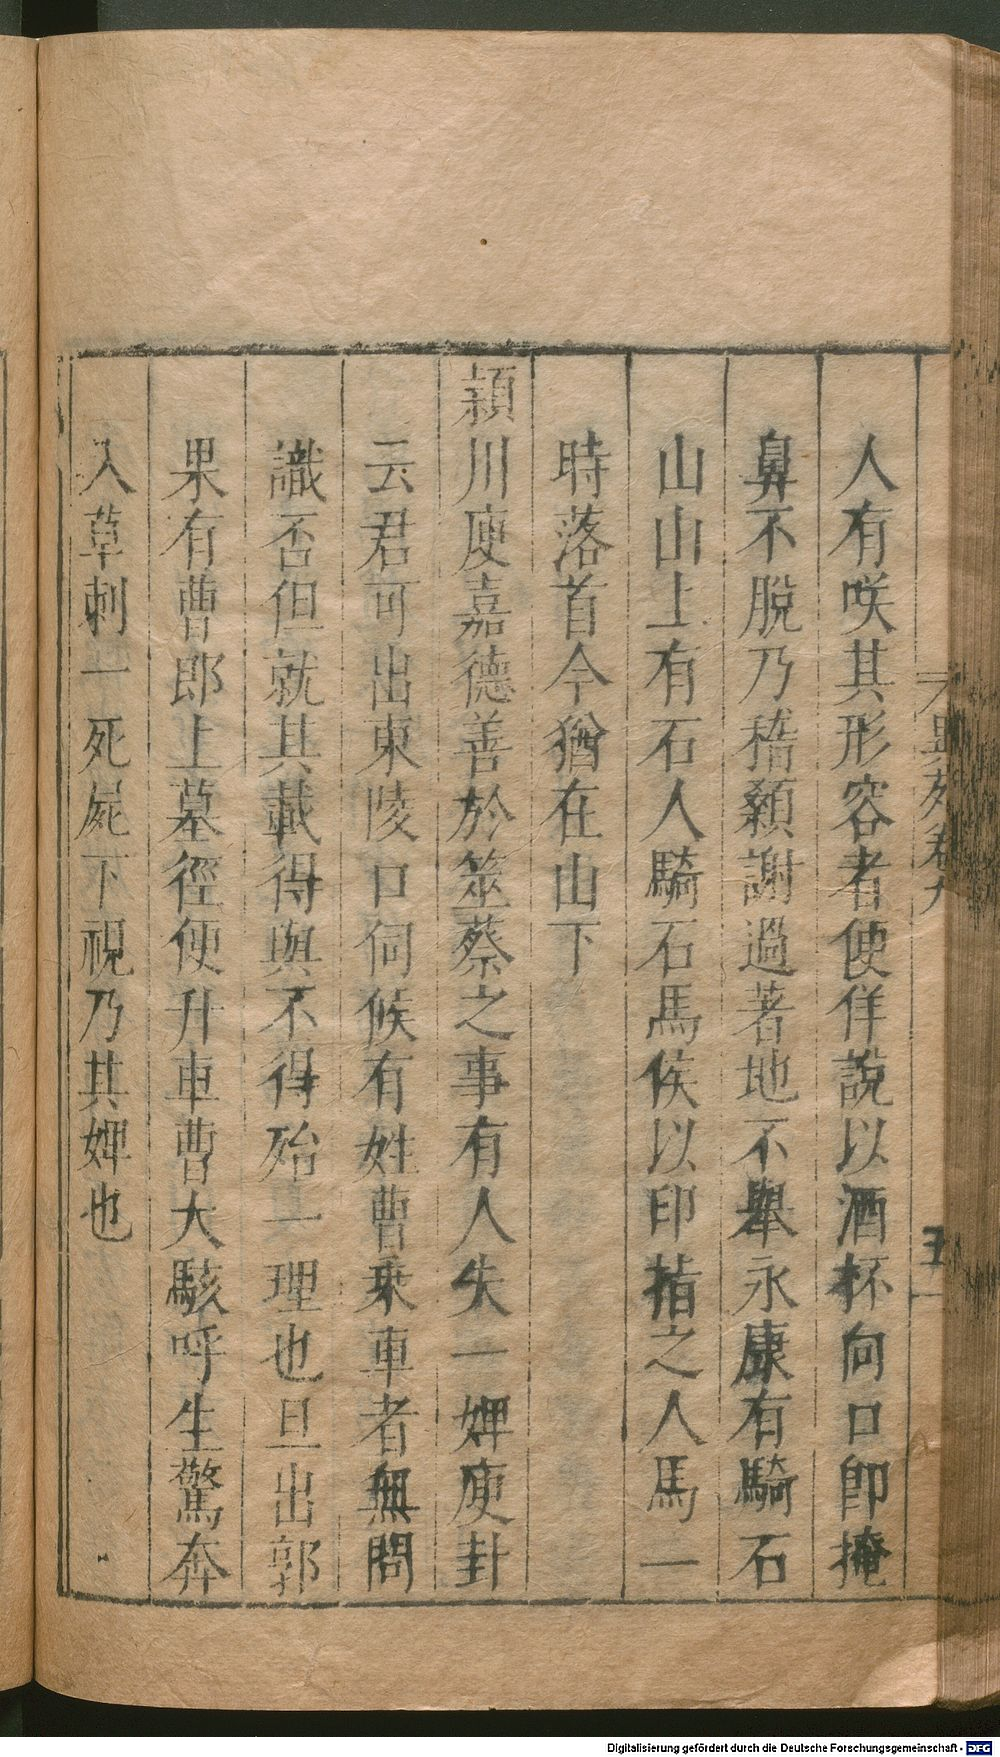 異苑卷九
五
人有咲其形容者便佯說以酒杯向口即掩
鼻不脫乃稽顙謝過著地不舉永康有騎石
山山上有石人騎石馬侯以印指之人馬一
時落首今猶在山下
潁川庾嘉德善於筮蔡之事有人失一婢庾卦
云君可出東陵口伺候有姓曹乗車者無問
識否但就其載得與不得殆一理也旦出郭
果有曹郎上墓徑便升車曹大駭呼生驚奔
入草刺一死屍下視乃其婢也
Digitalisierung gefördert durch die Deutsche Forschungsgemeinschaft - DFG